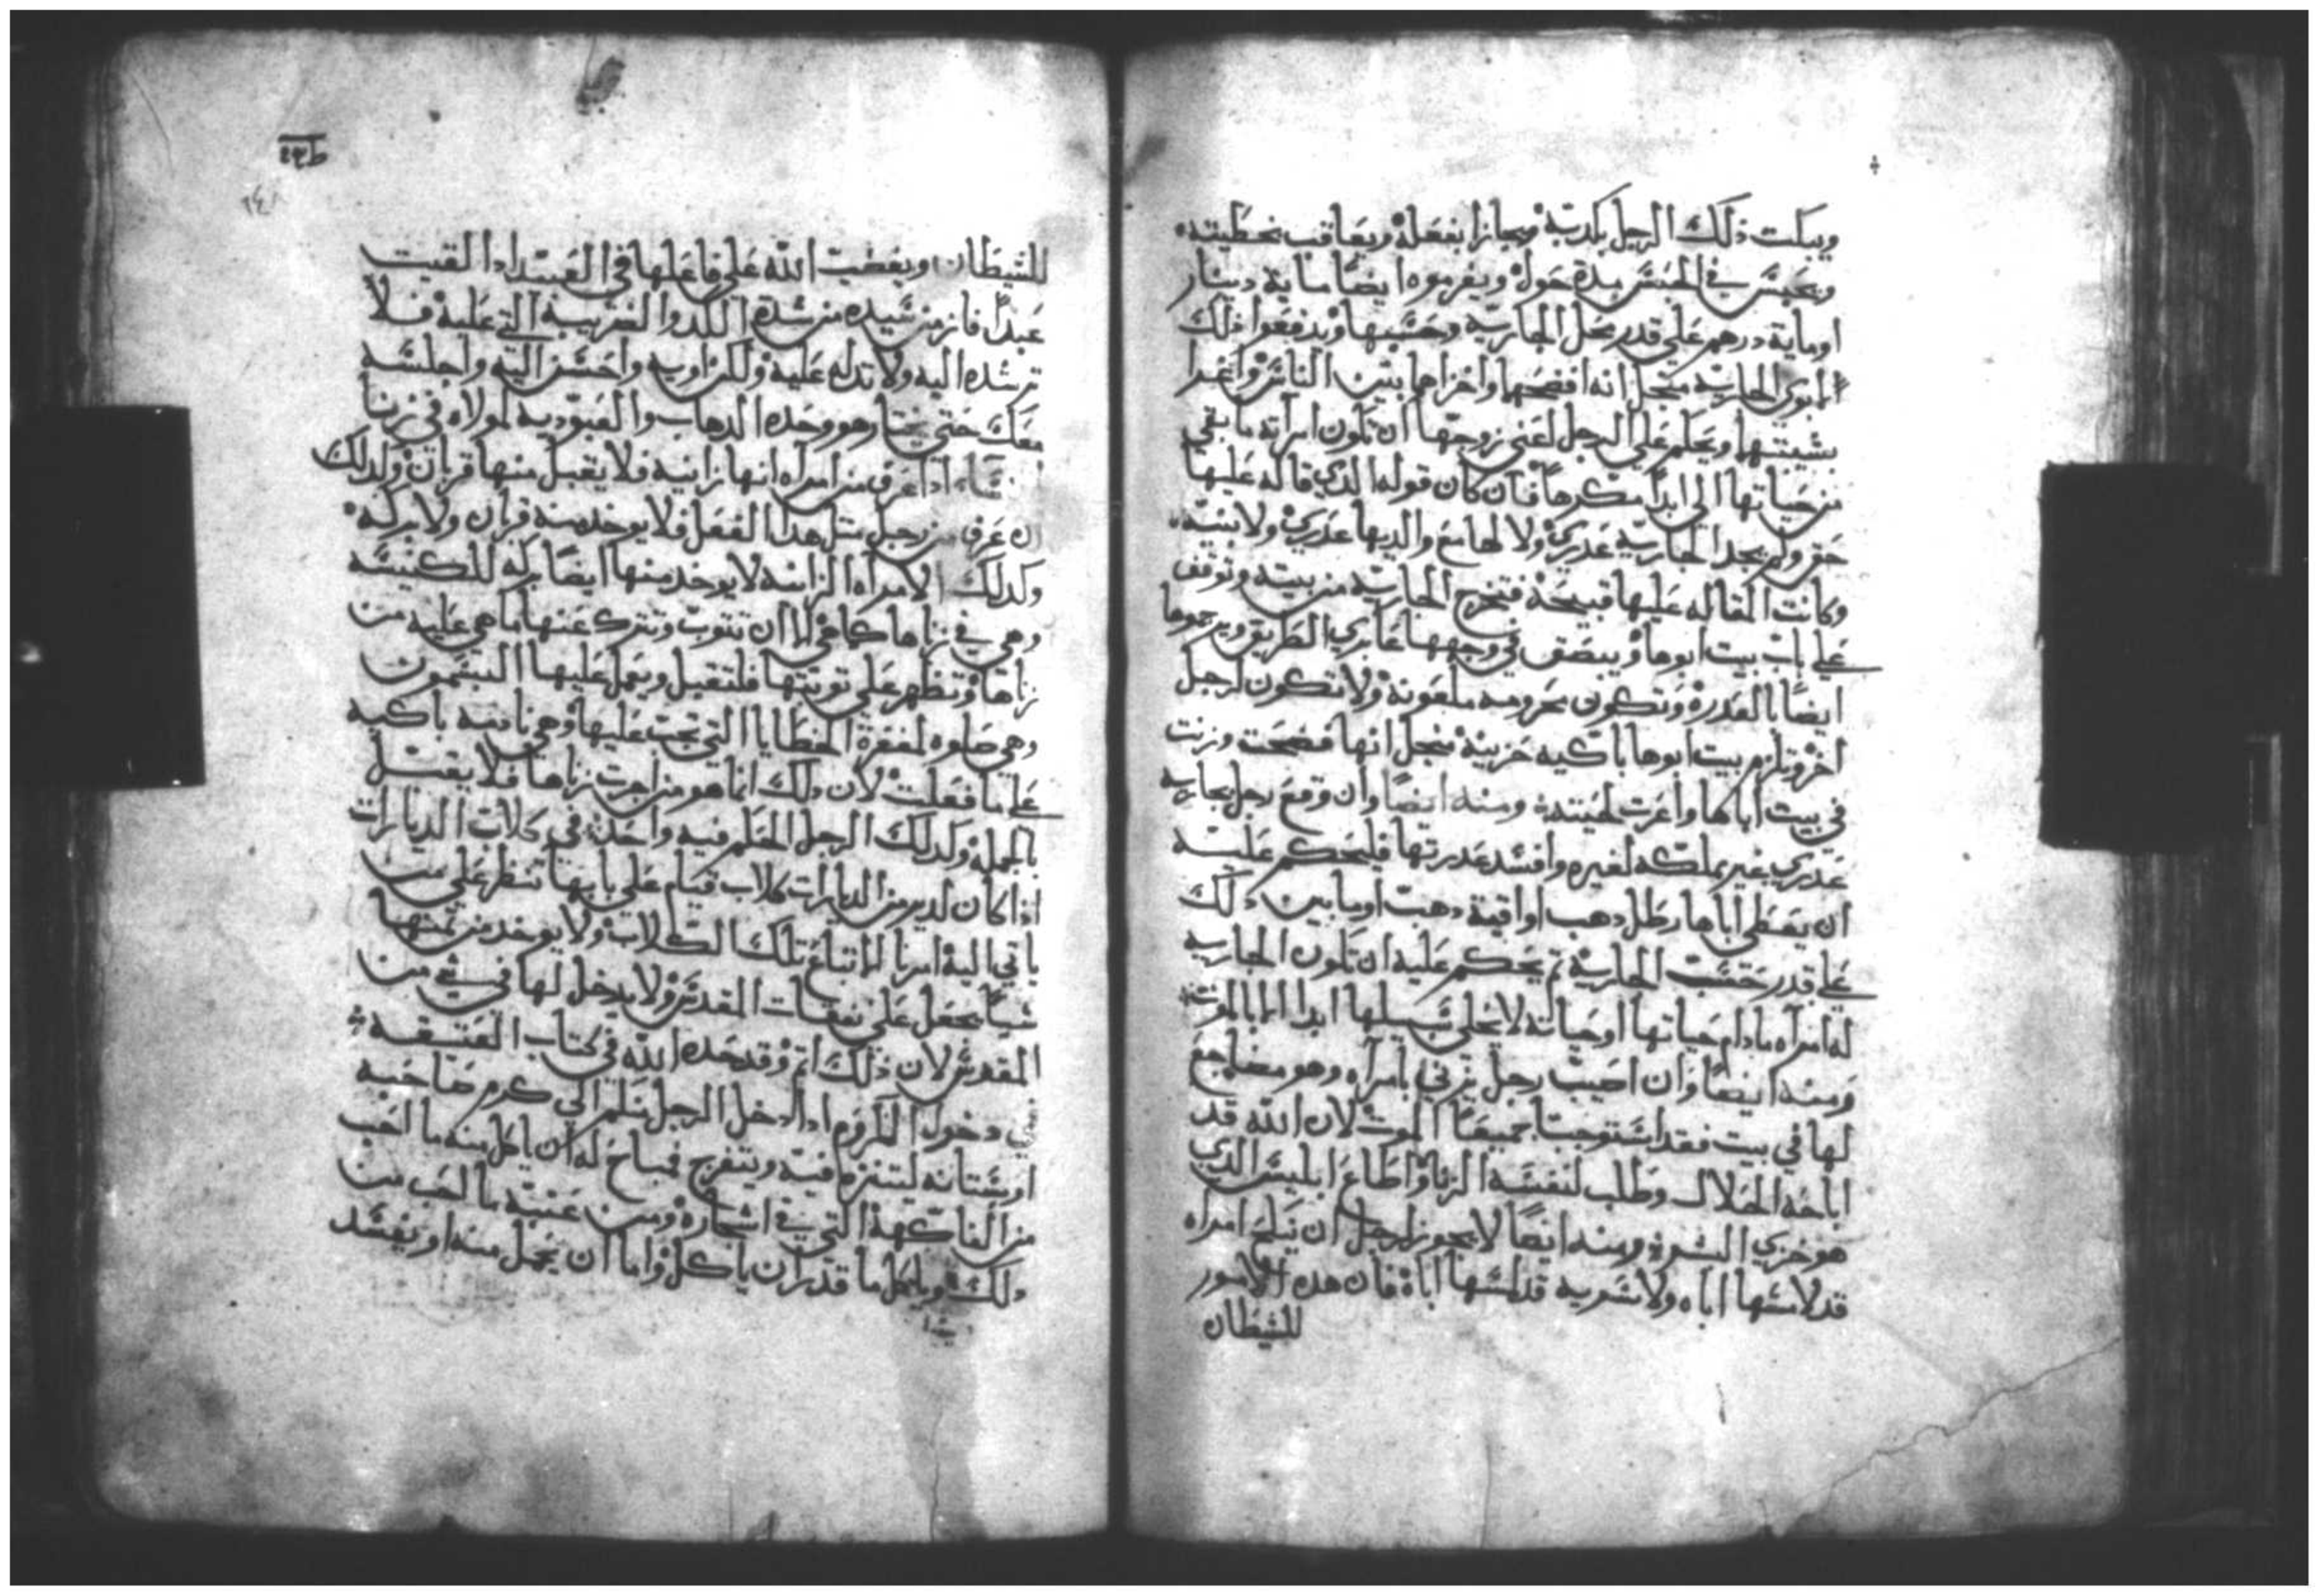 ويبكت ذلك الرجل بكدبة ويجازا بفعله ويعاقب بخطيته
ويحبس في الحبس مدة حول ويغرموه ايضا ماية دينار
اوماية درهم علي قدر محل الجارية وحسبها ويدفعوا ذلك
الي ابوي الجارية من اجل انه افضحها واخزاها بين الناس
بشيبتها ويحكم علي الرجل اعني زوجها ان تكون امرأته ما بقي
من حياتها الي ابدا مكرها فان كان قوله الدي قاله عليها
حق ولم يجد الجارية عدري ولا لها مع والديها عدري ولا بنية
وكانت المقاله عليها قبيحة فتخرج الجارية من بيته وتوقف
علي باب بيت ابوها ويبصق في وجهها عابري الطريق ويرجموها
ايضا بالقدرة وتكون محرومه ملعونة ولا تكون لرجل
اخر وتلزم بيت ابوها باكيه حزينة من اجل انها فضحت وزنت
في بيت اباها واعرت لحيته ومنه ايضا وان وقع رجل بجاريه
عدري بغير ملكه لغيره وافسد عدرتها فليحكم عليه
ان يعطي اباها رطل دهب اواقية دهب اوما بين دلك
علي قدر حسب الجارية ثم يحكم عليه ان تكون الجاريه
له امرأه مادام حياتها اوحياته لا يخلي سبيلها ابدا الا بالموت
ومنه ايضا وان اصيب رجل يزني بامرأه وهو مضاجع
لها في بيت فقد استوجبا جميعا الموت لان الله قد
اباحه الحلال وطلب لنفسه الزنا واطاع ابليس الدي
هو خزي البشرة ومنه ايضا لا يجوز لرجل ان ينكح امراه
قد لامسها اباه ولا سريه قد لمسها اباه فان هده الامور
للشيطان
للشيطان ويغضب الله علي فاعلها في العبد ادا لقيت
عبدا فار من سيده من شدة الكد والضريبة التي عليه فلا
ترشده اليه ولا تدله عليه ولكن اويه واحسن اليه واجلسه
معك حتي يختار هو وحده الدهاب والعبوديه لمولاه في زنا
النساء ادا عرف من امراه انها زانيه فلا يقبل منها قربان ولدلك
ان عرف من رجل مثل هدا الفعل فلا يوخد منه قربان ولا بركه
وكدلك الامراه الزانيه لا يوخد منها ايضا بركه للكنيسه
وهي في زناها كما هي الا ان تتوب وتترك عنها ما هي عليه من
زناها وتظهر علي توبتها فلتقبل ويعمل عليها
وهي صلوه لمغفرة الخطايا التي تجب عليها وهي باكيه
علي ما فعلت لان دلك انما هو من اجرت زناها فلا يقبل
بالجملة وكدلك الرجل الحكم فيه واحد في كلاب الديارات
اذا كان لدير من الديارات كلاب قيام علي بابها تنظر علي من
ياتي اليه امرنا الا تباع تلك الكلاب ولا يوخد من ثمنها
شيا يجعل علي نفقات المقدس ولا يدخل لها في شي من
المقدس لان ذلك اثم وقد حده الله في كتاب العتيقه
في دخول الكروم ادا دخل الرجل منكم الي كرم صاحبه
اوبستانه ليتنزه فيه ويتفرج فمباح له ان ياكل منه ما احب
من الفاكهة التي في اشجاره ومن عنبة ما احب من
دلك وياكل ما قدر ان ياكل واما ان يحمل منه او يفسد